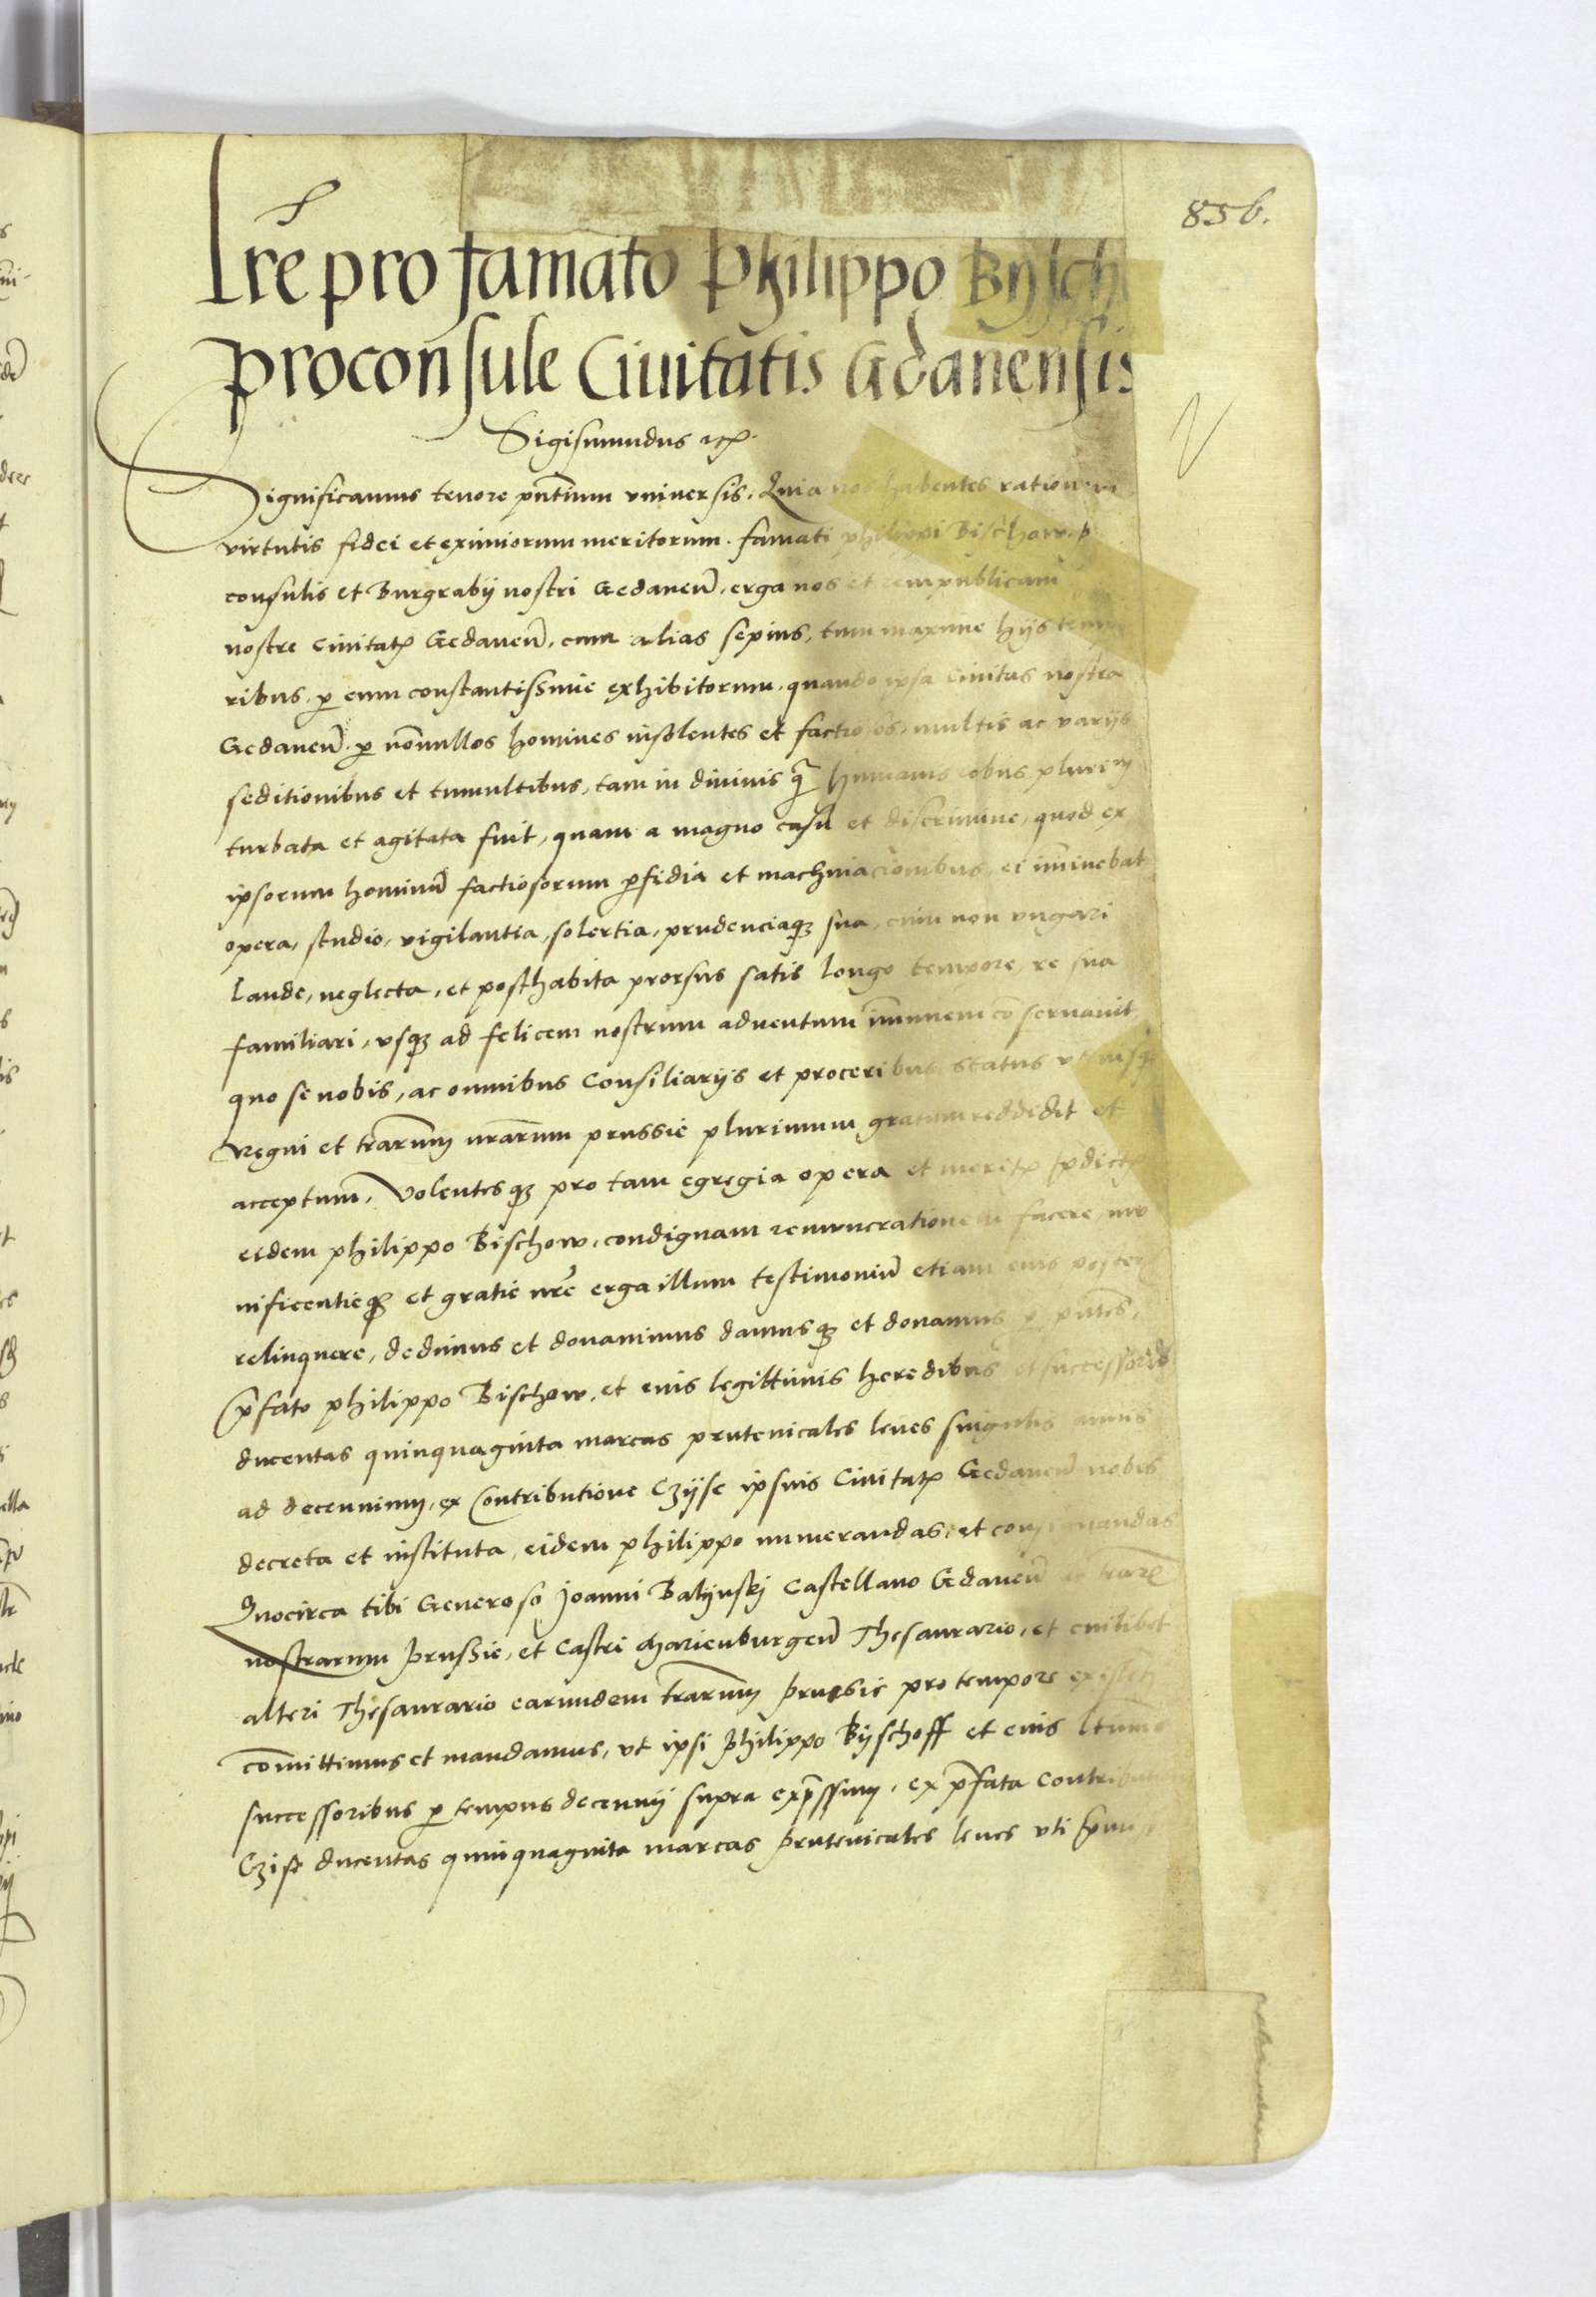 856.
Lre pro famato Philippo Bysch
proconsule Civitatis Gdanensis
Sigismundus etc.
Significamus tenore pntium vniversis. Quia nos habentes rationem
virtutis fidei et eximiorum meritorum. famati philippi Bischow. p
consulis et Burgrabij nostri Gedaneñ. erga nos et rempublicam
nostre Civitatꝭ Gedaneñ. cum alias sepius, tum maxime hijs tempo
ribus. ꝑ eum constantissime exhibitorum. quando ipsa Civitas nostra
Gedaneñ. ꝑ nonnullos homines insolentes et factiosos, multis ac varijs
seditionibus et tumultibus, tam in divinis q̃ humanis rebus plurem
turbata et agitata fuit, quam a magno casu et discrimine, quod ex
ipsorum hominũ factiosorum ꝑfidia et machinacionibus ei imminebat
opera, studio, vigilantia, solertia, prudenciaqꝫ sua, cum non vugari
laude, neglecta, et posthabita prorsus satis longo tempore re sua
familiari, vsqꝫ ad felicem nostrum adventum immunem cõservavit.
quo se nobis, ac omnibus Consiliarijs et proceribus status vtriusqꝫ
Regni et trarum nrarum prussie plurimum gratum reddidit et
acceptum. Volentesqꝫ pro tam egregia opera et meritꝭ p̃dictꝭ
eidem philippo Bischow. condignam remuneracionem facere, mu
nificentieqꝫ et gratie nre erga illum testimoniũ etiam eius posteris
relinquere, dedimus et donavimus damusqꝫ et donamus ꝑ pntes,
p̃fato philippo Bischow, et eius legittimis heredibus et successoribꝫ
ducentas quinquaginta marcas prutenicales leves singulis annis
ad decennium, ex Contributione Czyse ipsius Civitatꝭ Gedaneñ nobis
decreta et instituta, eidem philippo numerandas, et consignandas
Quocirca tibi Generoso Joanni Balijnskj Castellano Gedaneñ ac trarꝝ
nostrarum Prussie, et Castri Marienburgeñ Thesaurario, et cuilibet
alteri Thesaurario earundem trarum Prussie pro tempore existeñ
cõmittimus et mandamus, vt ipsi Philippo Byschoff et eius ltimis
successoribus ꝑ tempus decennij supra exp̃ssum, ex p̃fata Contributione
Czise ducentas quinquaginta marcas Prutenicales leves vti p̃miss